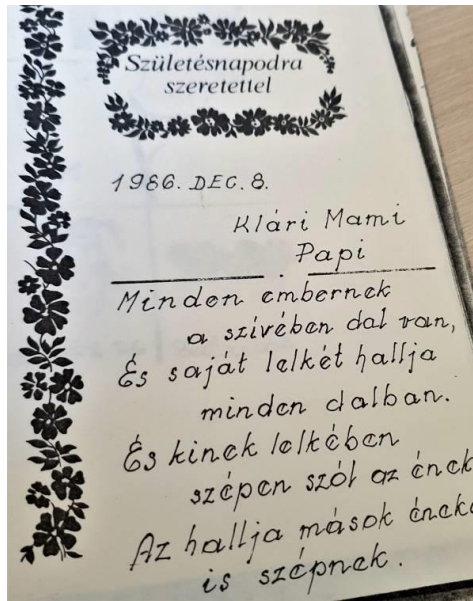 Születésnapodra
szeretettel
1986. DEC. 8.
Klári Mami
Papi
Minden embernek
a szívében dal van,
És saját lelkét hallja
minden dalban.
És kinek lelkében
szépen szól az ének
Az hallja mások
is szépnek.